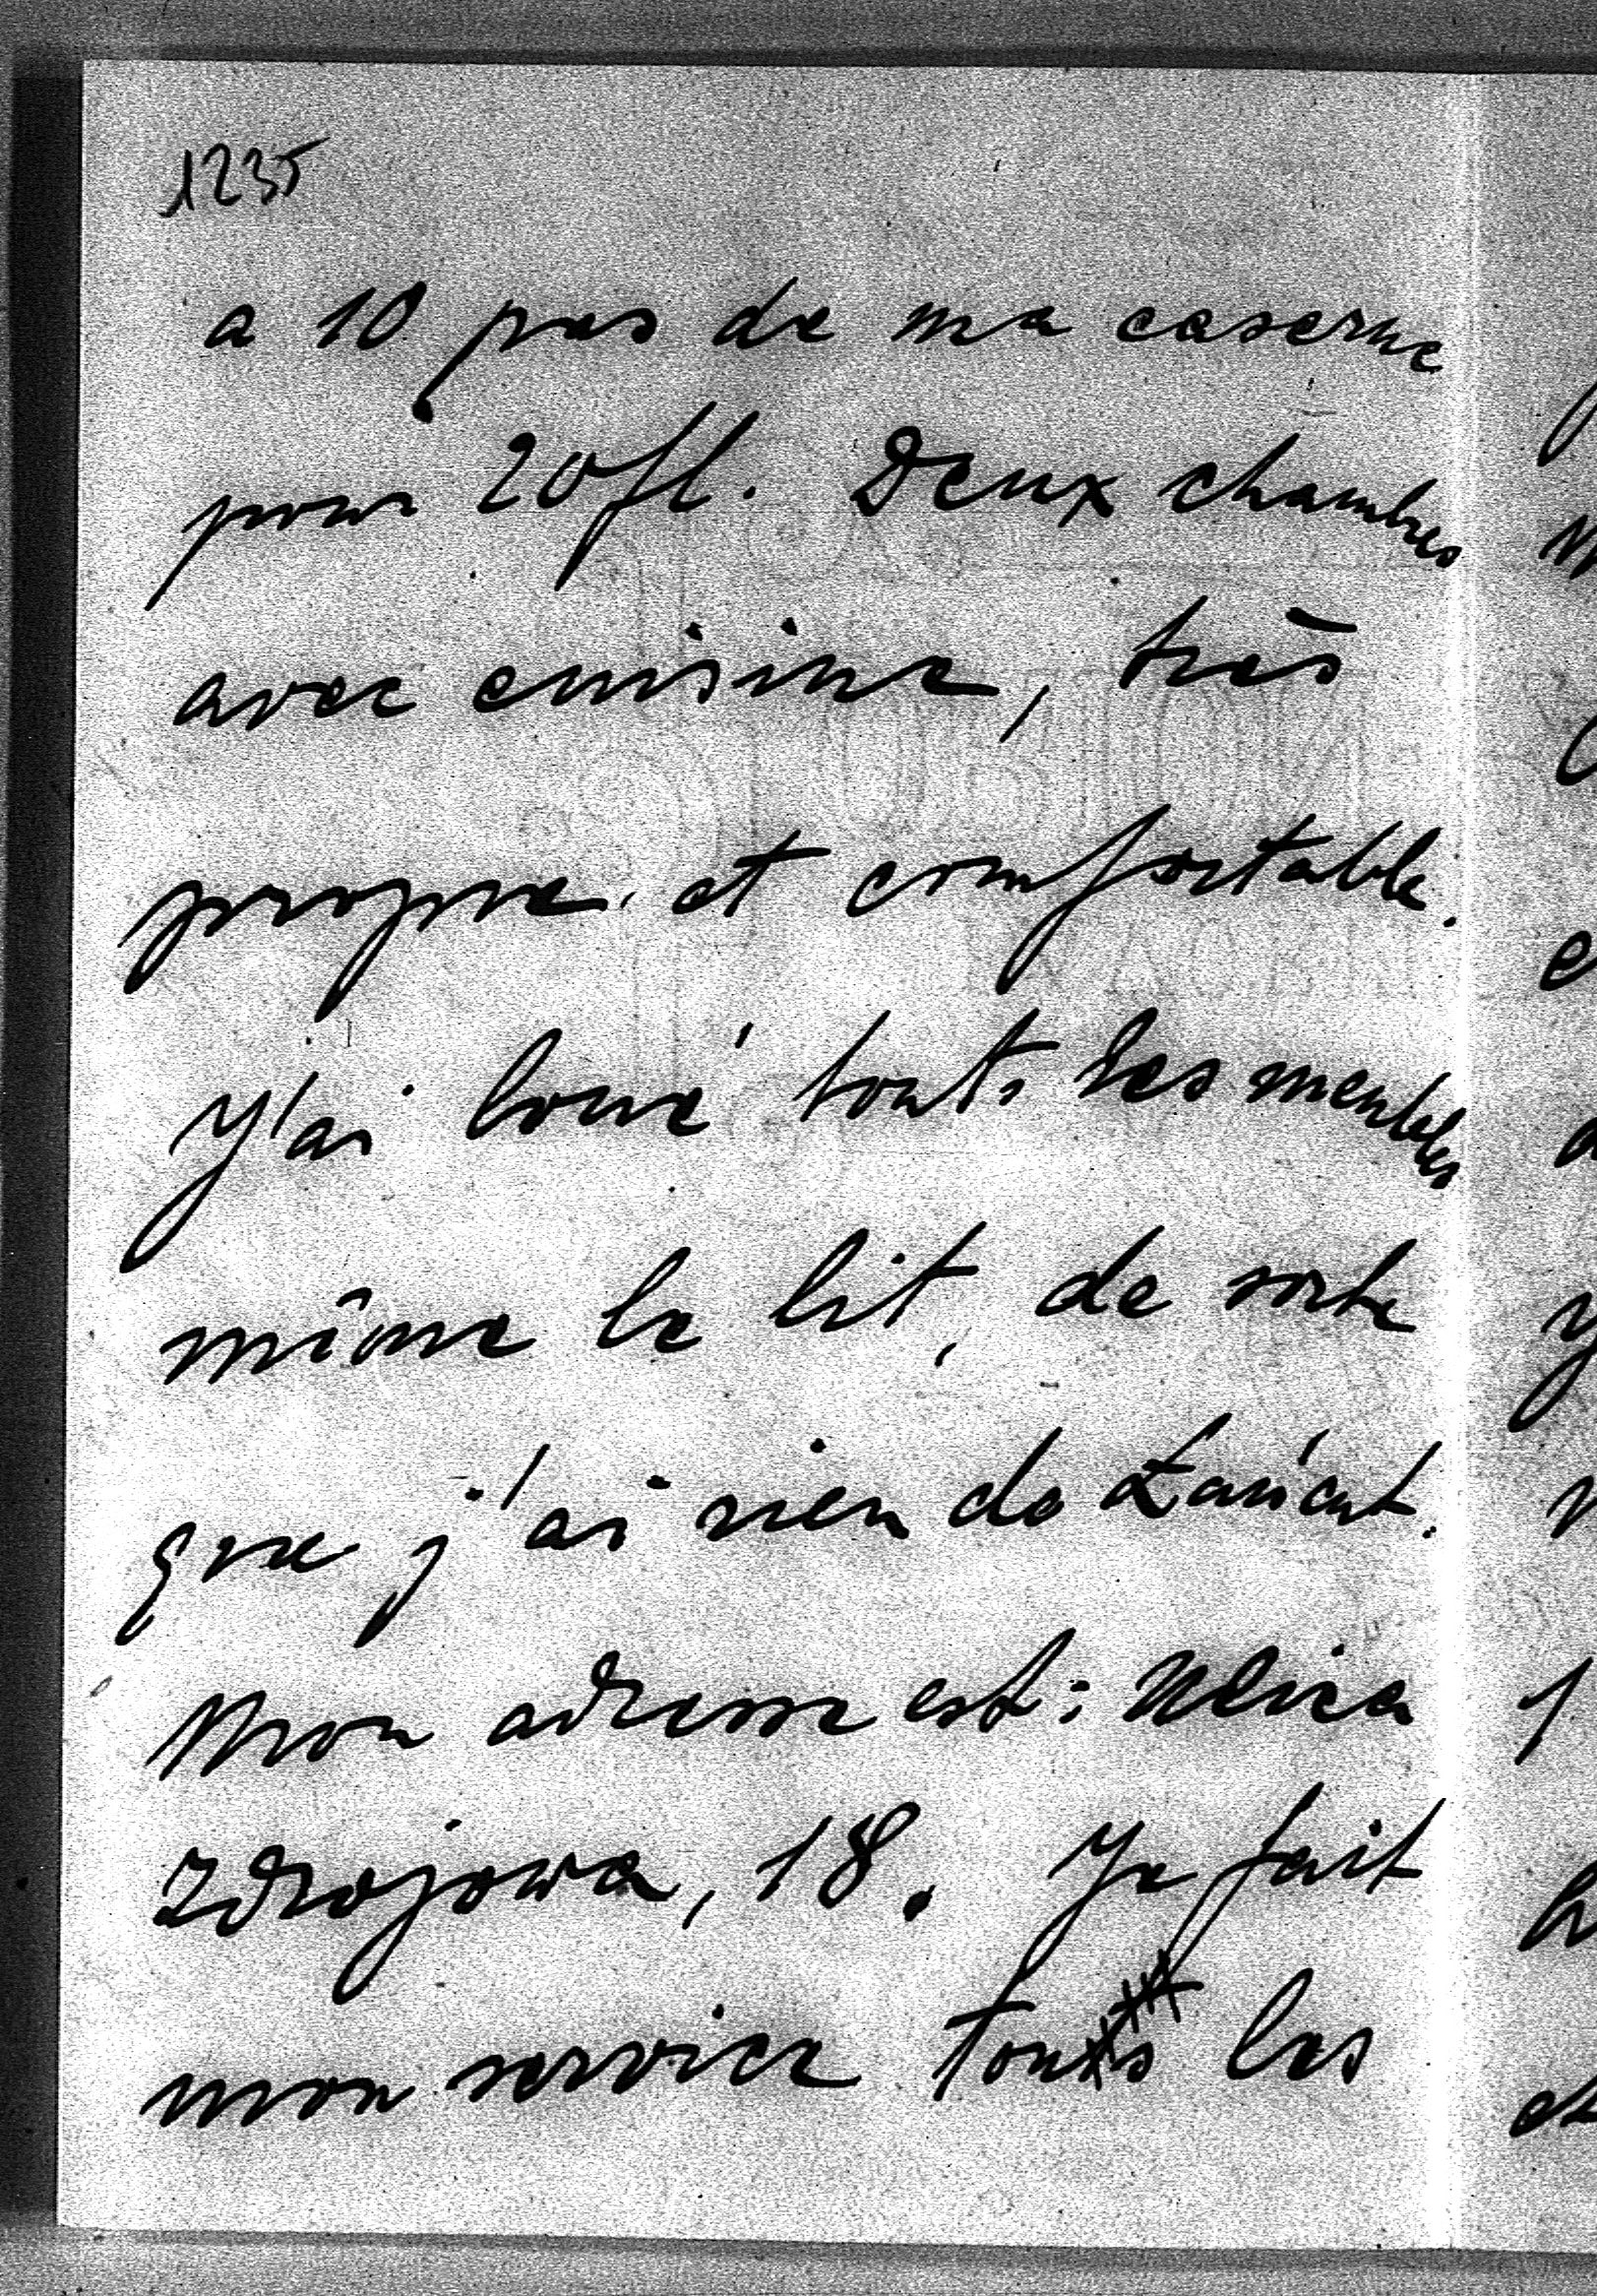 1235
a 10 pas de ma caserne
pour 20 fl. Deux chambres
avec cuisine, très
propre et comfortable.
J'ai loué touts les meubles
même le lit, de sorte
que j'ai rien de Łańcut.
Mon adresse est: Ulica
Zdrojowa, 18. Je fait
mon service tous les